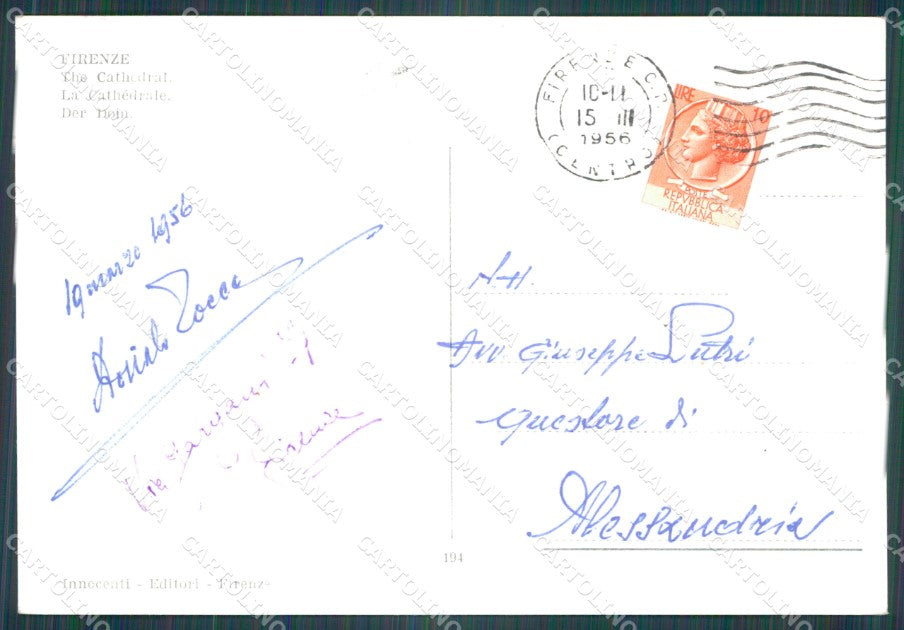 FIRENZE
The Cathedral.
La Cathédrale.
Der Dom.
FIRENZE C.P.
10-11
15 III
1956
(CENTRO)
LIRE 10
POSTE
REPVBBLICA
ITALIANA
19 marzo 1956
Rocca
Firenze
N.H.
Avv Giuseppe Lutri
Questore di
Alessandria
194
Innocenti - Editori - Firenze
CARTOLINOMANIA